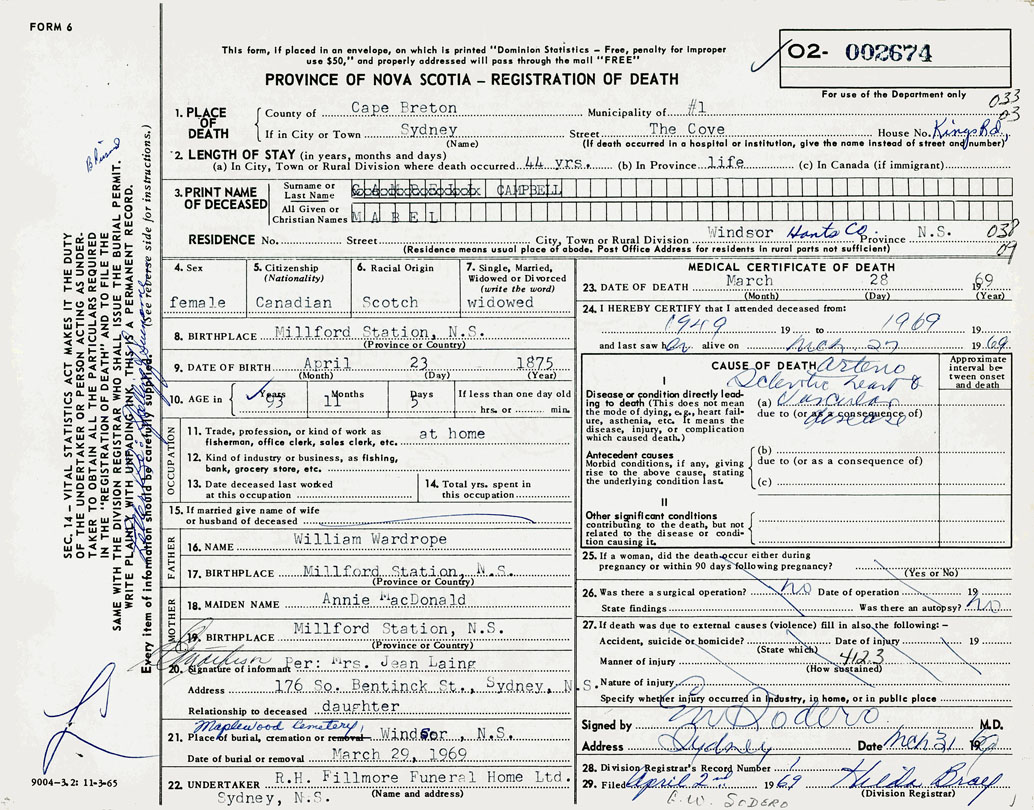 FORM 6
This form, if placed in an envelope, on which is printed "Dominion Statistics – Free, penalty for improper
use $50," and properly addressed will pass through the mail "FREE"
02- 002674
PROVINCE OF NOVA SCOTIA – REGISTRATION OF DEATH
For use of the Department only
033
03
1. PLACE OF DEATH County of Cape Breton Municipality of #1
If in City or Town Sydney Street The Cove House No. Kings Rd.
(Name) (If death occurred in a hospital or institution, give the name instead of street and number)
2. LENGTH OF STAY (in years, months and days)
(a) In City, Town or Rural Division where death occurred 44 yrs. (b) In Province life (c) In Canada (if immigrant)
3. PRINT NAME OF DECEASED Surname or Last Name CAMPBELL
All Given or Christian Names MABEL
RESIDENCE No. Street City, Town or Rural Division Windsor Hants Co. Province N.S. 038
09
(Residence means usual place of abode. Post Office Address for residents in rural parts not sufficient)
4. Sex
female
5. Citizenship
(Nationality)
Canadian
6. Racial Origin
Scotch
7. Single, Married,
Widowed or Divorced
(write the word)
widowed
8. BIRTHPLACE Millford Station, N.S.
(Province or Country)
9. DATE OF BIRTH April 23 1875
(Month) (Day) (Year)
10. AGE in Years Months Days If less than one day old
93 11 5 hrs. or min.
OCCUPATION
11. Trade, profession, or kind of work as
fisherman, office clerk, sales clerk, etc. at home
12. Kind of industry or business, as fishing,
bank, grocery store, etc.
13. Date deceased last worked
at this occupation
14. Total yrs. spent in
this occupation
15. If married give name of wife
or husband of deceased
FATHER
16. NAME William Wardrope
17. BIRTHPLACE Millford Station, N.S.
(Province or Country)
MOTHER
18. MAIDEN NAME Annie MacDonald
19. BIRTHPLACE Millford Station, N.S.
(Province or Country)
20. Signature of informant Per: Mrs. Jean Laing
Address 176 So. Bentinck St., Sydney, N.S.
Relationship to deceased daughter
Maplewood Cemetery,
21. Place of burial, cremation or removal Windsor, N.S.
Date of burial or removal March 29, 1969
22. UNDERTAKER R.H. Fillmore Funeral Home Ltd.
Sydney, N.S. (Name and address)
MEDICAL CERTIFICATE OF DEATH
23. DATE OF DEATH March 28 1969
(Month) (Day) (Year)
24. I HEREBY CERTIFY that I attended deceased from:
1949 19 to 1969 19
and last saw her alive on Mch 27 1969
CAUSE OF DEATH
Approximate interval between onset and death
Arterio
Sclerotic heart &
I
Disease or condition directly leading to death (This does not mean the mode of dying, e.g., heart failure, asthenia, etc. It means the disease, injury, or complication which caused death.)
(a) Vascular
due to (or as a consequence of)
disease
Antecedent causes
Morbid conditions, if any, giving rise to the above cause, stating the underlying condition last.
(b)
due to (or as a consequence of)
(c)
II
Other significant conditions
contributing to the death, but not related to the disease or condition causing it.
25. If a woman, did the death occur either during
pregnancy or within 90 days following pregnancy?
(Yes or No)
26. Was there a surgical operation? no Date of operation 19
State findings Was there an autopsy? no
27. If death was due to external causes (violence) fill in also the following: –
Accident, suicide or homicide? Date of injury 19
(State which)
Manner of injury 412.3
(How sustained)
Nature of injury
Specify whether injury occurred in Industry, in home, or in public place
Signed by E W Sodero M.D.
Address Sydney Date Mch 31 1969
28. Division Registrar's Record Number
29. Filed April 2nd 1969
(Division Registrar)
E.W. SODERO
SEC. 14 – VITAL STATISTICS ACT MAKES IT THE DUTY
OF THE UNDERTAKER OR PERSON ACTING AS UNDER-
TAKER TO OBTAIN ALL THE PARTICULARS REQUIRED
IN THE "REGISTRATION OF DEATH" AND TO FILE THE
SAME WITH THE DIVISION REGISTRAR WHO SHALL ISSUE THE BURIAL PERMIT.
WRITE PLAINLY WITH UNFADING INK, THIS IS A PERMANENT RECORD.
Every item of information should be carefully supplied. (See reverse side for instructions.)
9004-3.2: 11-3-65